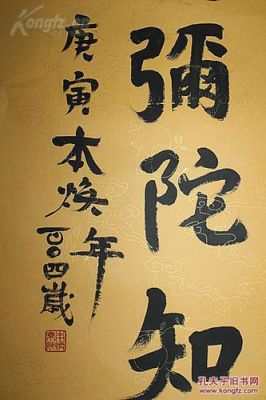 彌陀知
庚寅本焕年百〇四歲
Kongfz
孔夫子旧书网